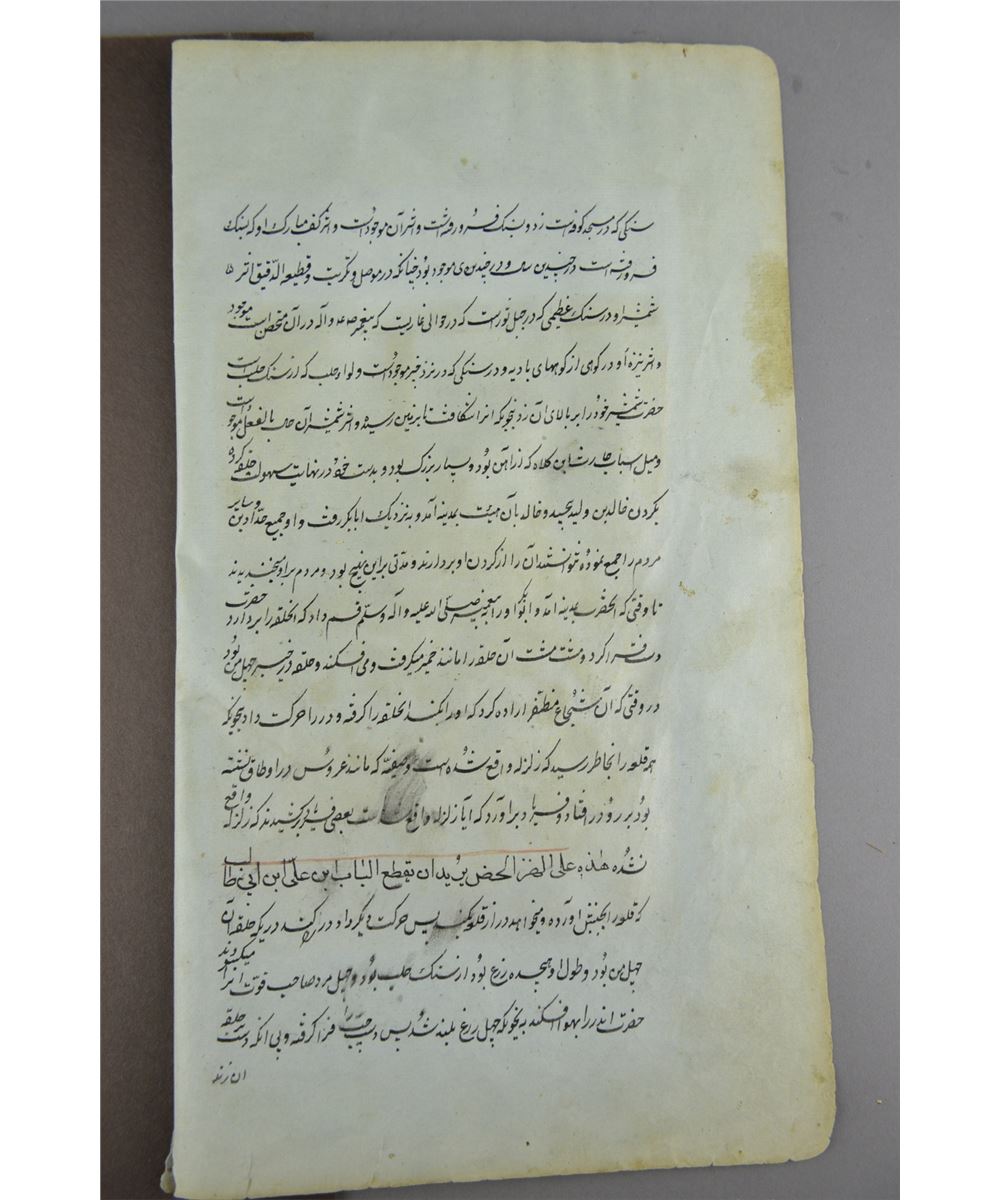 سنکی که در مسجد کوفه است زد و بسنک فرو رفته است و اثر آن موجود است و اثر کف مبارک او که بسنک
فرو رفته است در چندین و در چندین ی موجود بود چنانکه در موصل و تکریت و قطیعه الدقیق اثر
شمشیر او در سنک عظیمی که در جبل ثور است که در حوالی غاریست که پیغمبر ص و آله در آن متحصن است موجود
و اثر نیزه او در کوهی از کوههای بادیه و در سنکی که در نزد خیبر موجود است و که از سنک صلب است
حضرت شمشیر خود را بر بالای آن زد بنحویکه انرا شکافت تا بزمین رسید و اثر شمشیر آن جناب بالفعل موجود است
و میل اسیاب حارث ابن کلاه که از آهن بود و بسیار بزرک بود و بدست خود در نهایت سهولت حلقه کرده
بکردن خالد بن ولید پیچید و خالد بآن هیئت بمدینه آمد و به نزدیک ابابکر رفت و او جمیع حدادین و سایر
مردم را جمع نموده نتوانستند آن را از کردن او بردارند و مدتی براین نهج بود و مردم براو میخندیدند
تا وقتی که انحضرت بمدینه آمد و ابوبکر او را به پیغمبر صلی الله علیه و آله وسلم قسم داد که انحلقه را بردارد حضرت
دست فرا کرد و مشت مشت آن حلقه را مانند خمیر میکرفت و می افکند و حلقه در خیبر چهل من بود
در وقتی که آن شجاع مظفر اراده کرد که او را بکند انحلقه را کرفته و در را حرکت داد بنحویکه
همه قلعه را بخاطر رسید که زلزله واقع شده است و صفیه که مانند عروس در اوطاق نشسته
بود بر رو در افتاد و فریاد براورد که ایا زلزله واقع شده است بعضی فریاد برکشیدند که زلزله واقع
نشده هذه علی الهز الحض یرید ان یقطع الباب این علی ابن ابی طالب
که قلعه را بجنبش اورده و میخواهد در از قلعه بکند پس حرکت دیکر داد در را کند در یکه حلقه آن
چهل من بود و طول او هیجده ذرع بود از سنک صلب بود و چهل مرد صاحب قوت انرا میکشودند
حضرت اندر را بهوا افکند به نحویکه چهل ذرع بلند شد پس دست چپ را فرا کرفته و بی انکه دست حلقه
ان زند